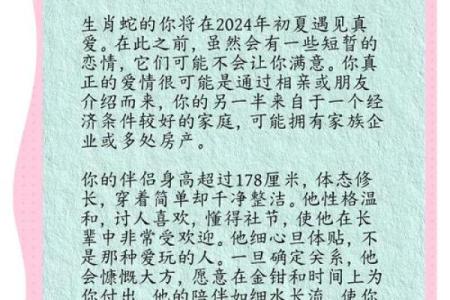 生肖蛇的你将在2024年初夏遇见真
爱。在此之前，虽然会有一些短暂的
恋情，它们可能不会让你满意。你真
正的爱情很可能是通过相亲或朋友
介绍而来，你的另一半来自于一个经
济条件较好的家庭，可能拥有家族企
业或多处房产。
你的伴侣身高超过178厘米，体态修
长，穿着简单却干净整洁。他性格温
和，讨人喜欢，懂得社节，使他在长
辈中非常受欢迎。他细心且体贴，不
是那种爱玩的人。一旦确定关系，他
会慷慨大方，愿意在金钳和时间上为
你付出。他的陪伴如细水长流，使你